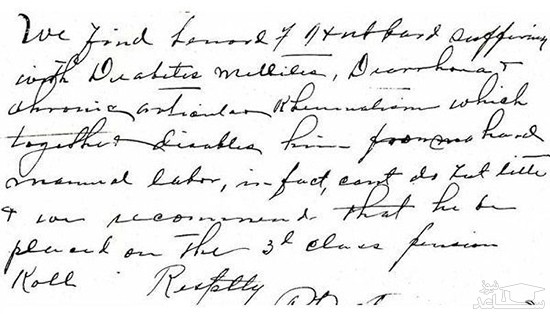 We find Lenord F Hubbard suffering
with Diabetis mellites, Diarrhoea &
chronic articular Rheumatism which
together disables him from hard
manual labor, in fact, cant do but little
& we recommend that he be
placed on the 3d class pension
Roll. Resptly